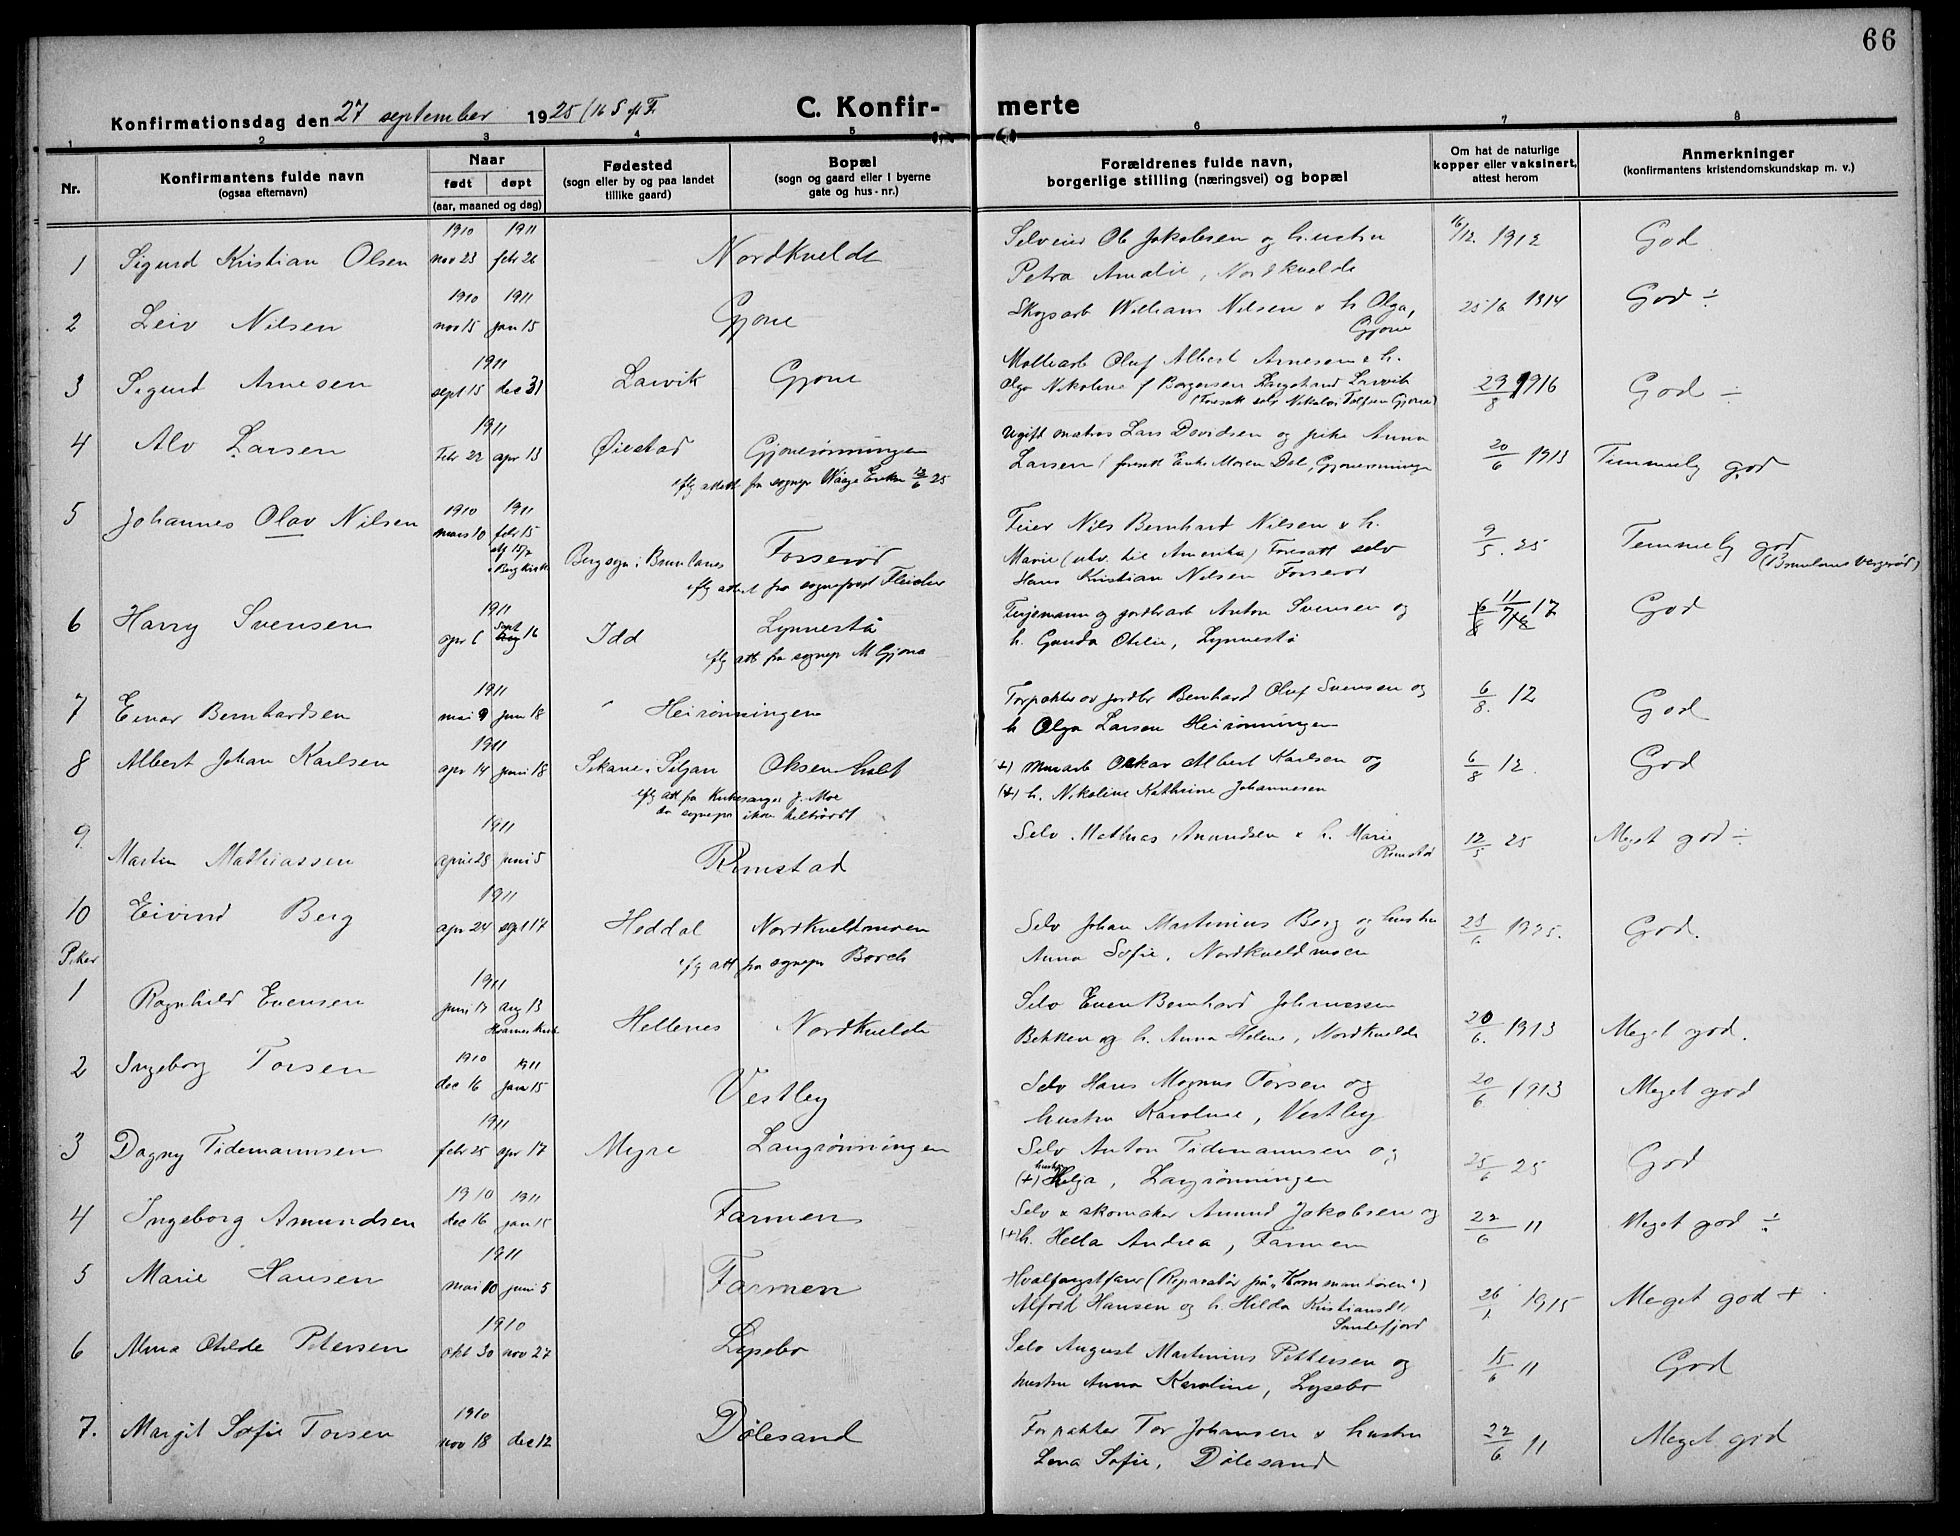 66
Konfirmationsdag den 27 september 1925 (16 S ef T.
C. Konfir- merte
1 2 3 4 5 6 7 8
Nr.
Konfirmantens fulde navn
(ogsaa efternavn)
Naar
født døpt
(aar, maaned og dag)
Fødested
(sogn eller by og paa landet
tillike gaard)
Bopæl
(sogn og gaard eller i byerne
gate og hus-nr.)
Forældrenes fulde navn,
borgerlige stilling (næringsvei) og bopæl
Om hat de naturlige
kopper eller vaksinert,
attest herom
Anmerkninger
(konfirmantens kristendomskundskap m. v.)
1910 1911
1 Sigurd Kristian Olsen nov 23 febr 26 Nordkvelde Selveier Ol Jakobsen og hustru 16/12 1912 God
Petra Amalie, Nordkvelde
1910 1911
2 Leiv Nilsen nov 15 jan 15 Gjone Skogsarb William Nilsen & h Olga, 25/6 1914 God ÷
Gjone
1911
3 Sigurd Arnesen sept 15 dec 31 Larvik Gjone Møllearb Oluf Albert Arnesen & h.
Olga Nikoline f Borgersen Langestrand Larvik 29/8 1916 God ÷
(Foresatt selv Nikolai Tolfsen Gjone)
1911
4 Alv Larsen Febr 22 apr 13 Øiestad Gjonerønningen Ugift matros Lars Davidsen og pike Anna 20/6 1913 Temmelig god
Larsen (foresatt Enke Maren Dal, Gjonerønninge
iflg attest fra sognepr Waage 12/6 25
1910 1911
5 Johannes Olav Nilsen mars 10 febr 15 Feier Nils Bernhard Nilsen & h. 9/5 . 25 Temmelig god
15/2 i Berg kirke Berg sogn i Brunlanes Forserød Marie (utv. til Amerika) Foresatt selv (Brunlanes Vergeråd)
iflg attest fra sogneprest Fleicher Hans Kristian Nilsen Forserød
1911
6 Harry Svensen apr 6 Sept 16 Idd Lynnestå Ferjemann og jordbrarb Anton Svensen og 11/7 17 God
iflg att fra sognepr M Gjona h. Gunda Otilie, Lynnestå
1911
7 Einar Bernhardsen mai 9 juni 18 Heirønningen Forpakter av jordbr Bernhard Oluf Svensen og 6/8. 12 God
h Olga Larsen Heirønningen
1911
8 Albert Johan Karlsen apr 14 juni 18 Skane i Siljan Oksenholt (+) Murarb Oskar Albert Karlsen og 6/8 12. God
iflg att fra Kirkesanger J. Moe (+) h. Nikoline Kathrine Johannesen
da sognepr ikke tiltrådt
1911
9. Martin Mathiassen april 23 juni 5 Rimstad Selv. Mathias Amundsen & h. Marie 12/5 25 Meget god ÷
Rimstad
1911
10 Eivind Berg apr 24 sept 17 Heddal Nordkveldmoen Selv Johan Martinius Berg og hustru 23/6 1925. God.
iflg att fra sognepr Borch Anna Sofie, Nordkveldmoen
Piker
1911
1 Ragnhild Evensen juni 17 aug 13 Hellenes Nordkvelde Selv Even Bernhard Johnassen
Hvarnes kirke Bekken og h. Anna Helene, Nordkvelde 20/6. 1913 Meget god.
1910 1911
2 Ingeborg Torsen dec 16 jan 15 Vestley Selv Hans Magnus Torsen og 20/6 1913 Meget god
hustru Karoline, Vestley
1911
3 Dagny Tidemannsen febr 25 apr 17 Myre Langrønningen Selv Anton Tidemannsen og 25/6 25 God
(+) hustru Helga, Langrønningen
1910 1911
4 Ingeborg Amundsen dec 16 jan 15 Farmen Selv & skomaker Amund Jakobsen og 22/6 11 Meget god ÷
(+) h. Hella Andrea, Farmen
1911
5 Marie Hansen mai 10 juni 5 Farmen Hvalfangstfarer (Reparatør på "Kommandøren")
Alfred Hansen og h. Hilda Kristiansdtr 26/1. 1915 Meget god +
Sandefjord
1910
6 Alma Otilde Petersen okt 30 nov 27 Lysebo Selv August Martinius Pettersen og 15/6 11 God
hustru Anna Karoline, Lysebo
1910
7. Margit Sofie Torsen nov 18 dec 12 Dølesand Forpakter Tor Johansen & hustru 22/6. 11 Meget god
Lena Sofie, Dølesand